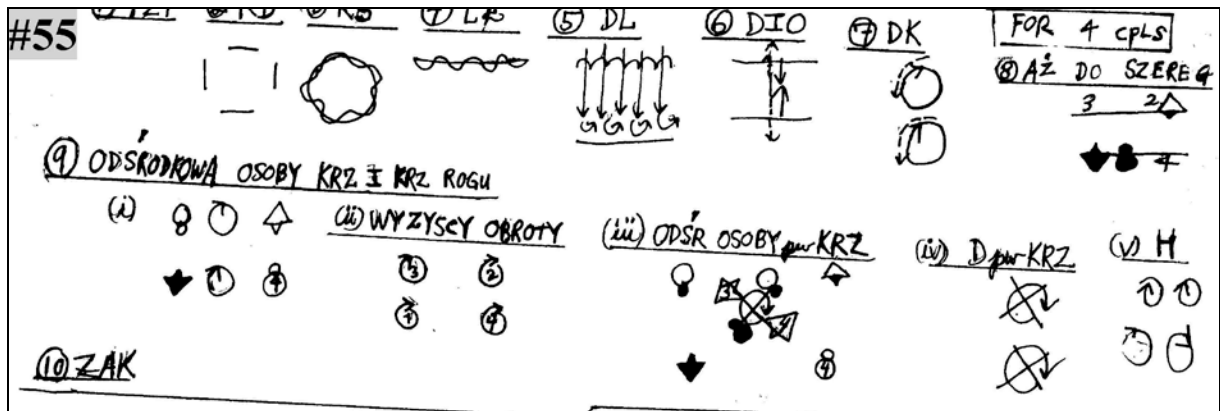 #55
④ LR
⑤ DL
⑥ DIO
⑦ DK
FOR 4 CPLS
⑧ AŻ DO SZEREG
3 2
4
⑨ ODŚRODKOWA OSOBY KRZ I KRZ ROGU
(i)
(ii) WYZYSCY OBROTY
(iii) ODŚR OSOBY pw KRZ
(iv) D pw KRZ
(v) H
3 2
1 4
3 4
4
⑩ ZAK